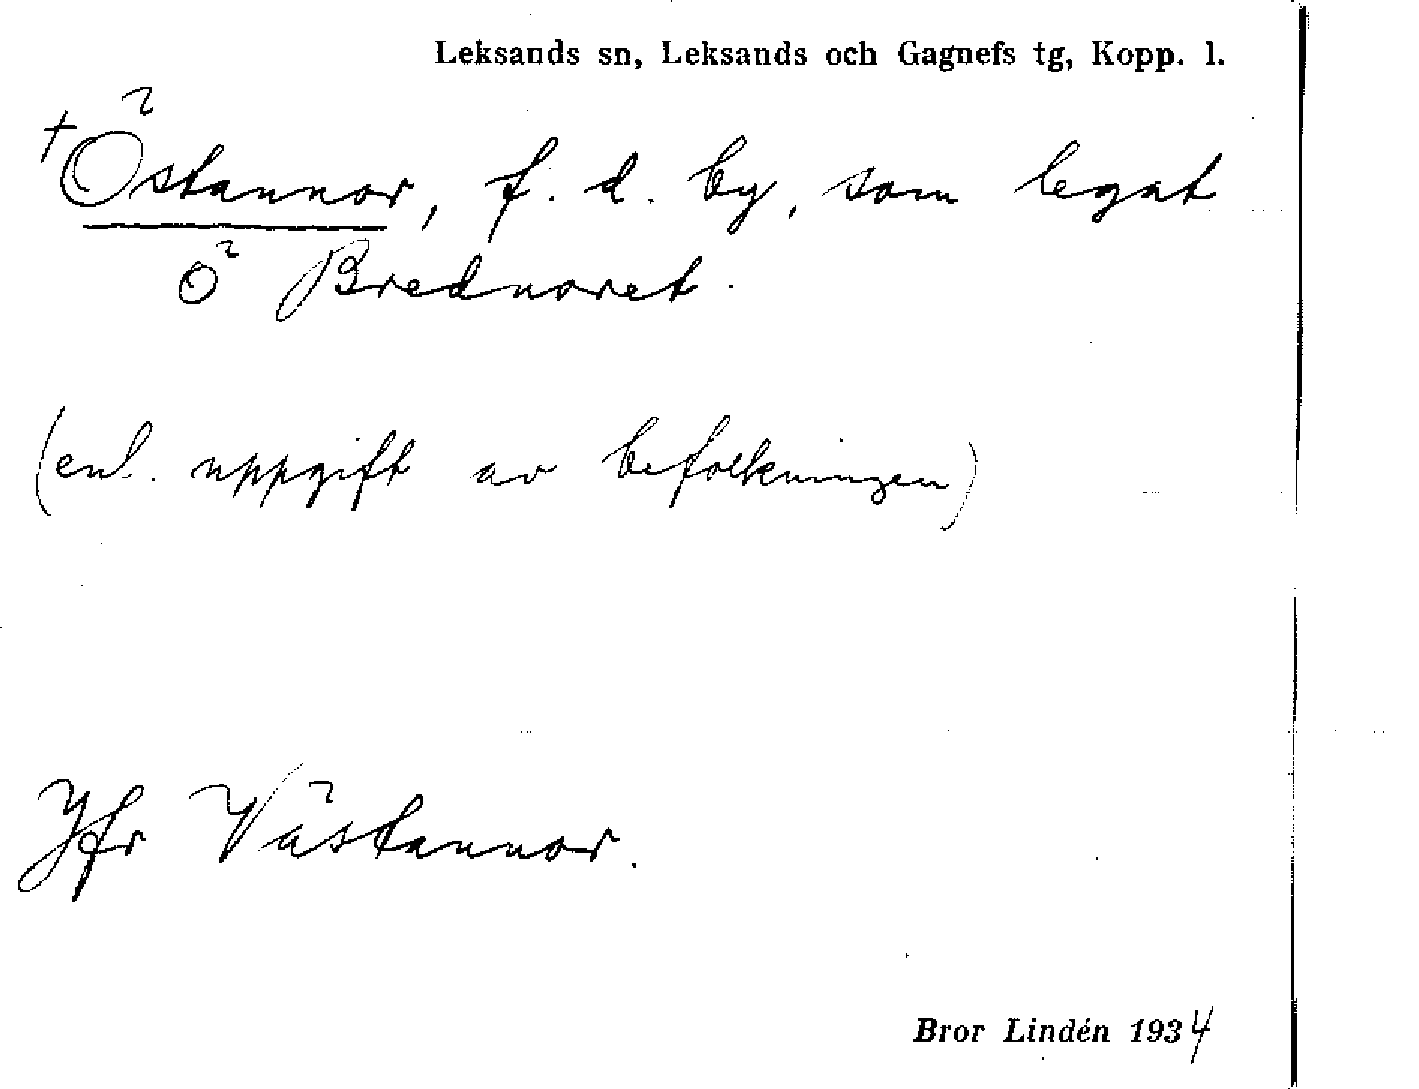 Leksands sn, Leksands och Gagnefs tg, Kopp. l.
†Östannor, f. d. by, som legat
ö Brednoret.
(enl. uppgift av befolkningen)
Jfr Västannor.
Bror Lindén 1934